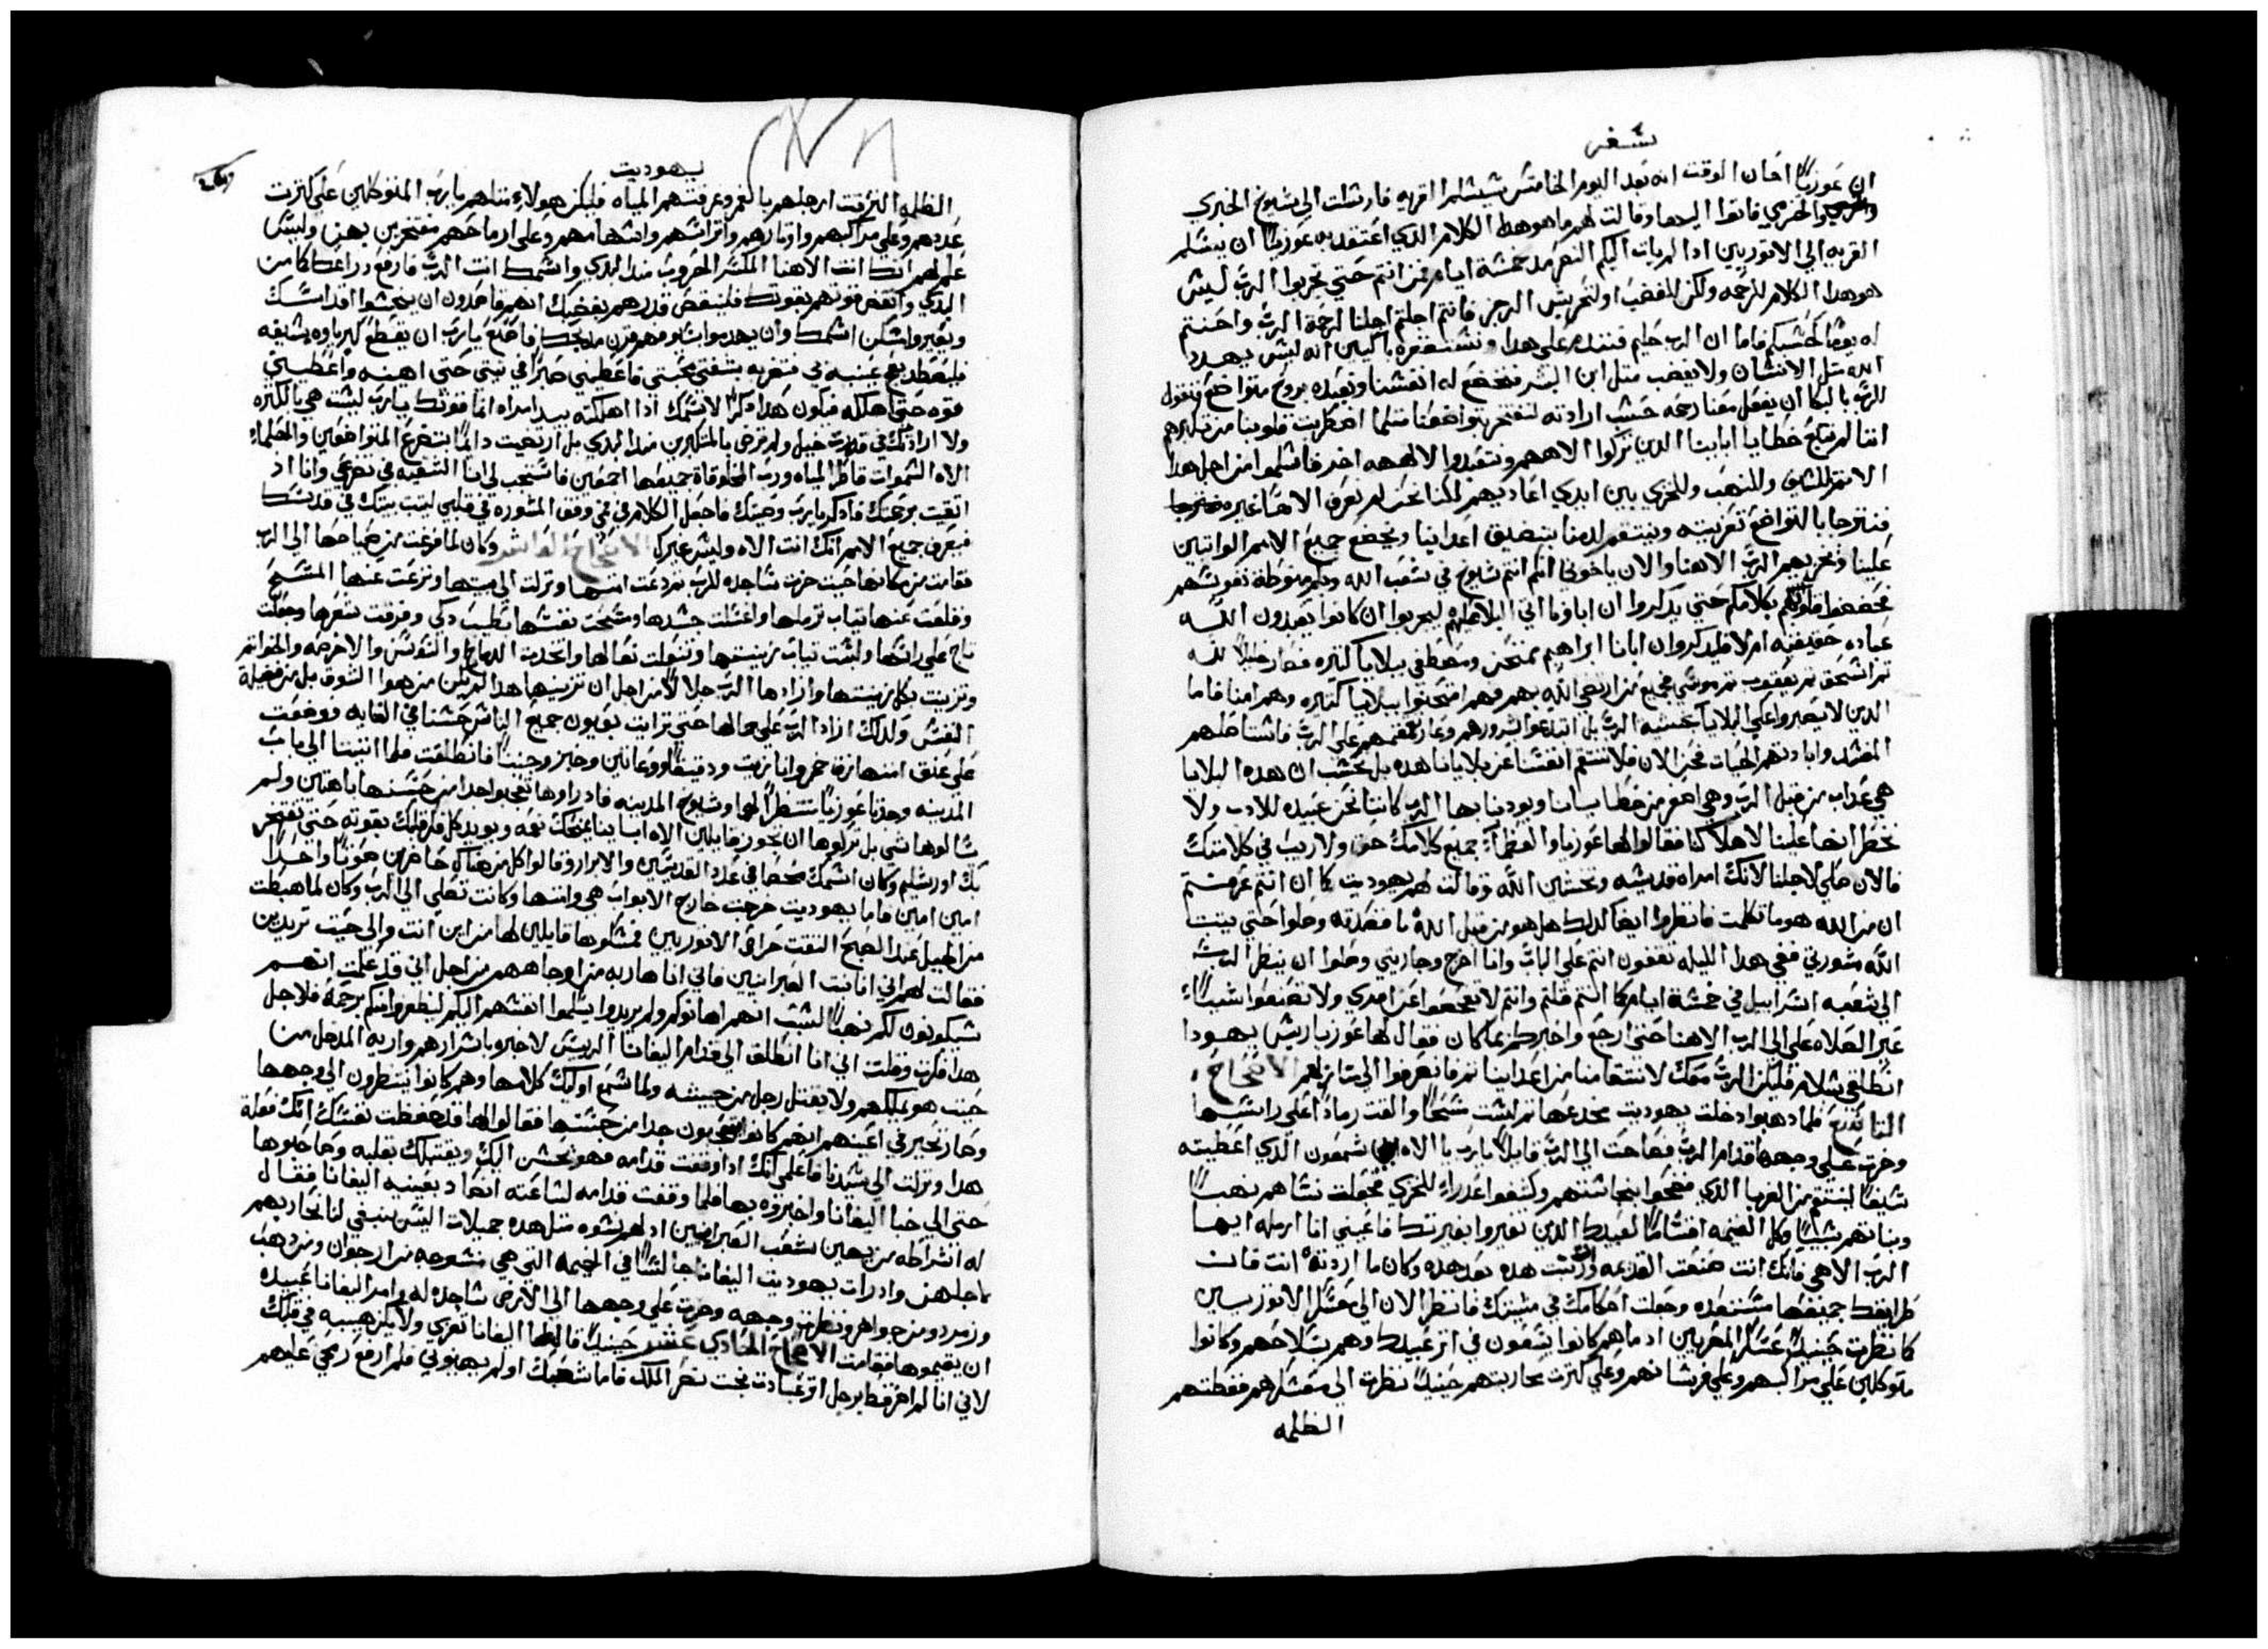 سفر
ان عوزيا احان الوقت انه بعد اليوم الخامس سيسلم القريه فارسلت الي شيوخ الخبري
والخرمي فاتوا اليها وقالت لهم ما هو هدا الكلام الدي اعتقد به عوزيا ان يسلم
القريه الي الاتوريين ادا لم يات اليكم النصر مد خمسة ايام فمن انتم حتي تجربوا الرب ليس
هو هدا الكلام للرحمه ولكن للغضب او لتحريش الرجز فانتم اجلتم اجلا لرحمة الرب واحنتم
له يوما كحسبكم فاما ان الرب حليم فنندم علي هدا ونستغفره باكيين انه ليس يهدد
الله متل الانسان ولا يغضب متل ابن البشر فنخضع له انفسنا ونعبده بروح متواضع فنقول
للرب بالبكا ان يفعل معنا رحمه حسب ارادته لنفتخر بتواضعنا متلما اضطربت قلوبنا من تكبرهم
اننا لم نتبع خطايا ابايينا الدين تركوا الاههم وتعبدوا لالهه اخر فاسلموا من اجل هدا
الاتم للسيف وللنهب وللخزي بين ايدي اعاديهم لكننا نحن لم نعرف الاها غيره
فنترجا بالتواضع تعزيته وينتقم لدمنا بتضيق اعداينا ويخضع جميع الامم الواتبين
علينا ويخزيهم الرب الاهنا والان يا اخوتي انكم انتم شيوخ في شعب الله وبكم منوطة نفوسهم
فخضعوا قلوبكم بكلامكم حتي يدكروا ان اباونا اتي البلا عليهم ليجربوا ان كانوا يعبدون الله
عباده حقيقيه ام لا فليدكروا ان ابانا ابراهيم ممتحن ومصطفي ببلايا كتيره فصار خليلا لله
تم اسحق تم يعقوب تم موسي وجميع من ارتضي الله بهم فهم امتحنوا ببلايا كتيره وهم امنا فاما
الدين لا يصبروا علي البلايا بخشيه الرب بل ابتدعوا بشرورهم وعار تقمقمهم علي الرب فاستاصلهم
المفسد وابادتهم الحيات فنحن الان فلا ننتقم انفسنا عن بلايانا هده بل نحسب ان هده البلايا
هي عداب من قبل الرب وهي اهون من خطايانا ويودبنا بها الرب كاننا نحن عبيده للادب ولا
نخطر انها علينا لاهلاكنا فقال لها عوزيا والعظما جميع كلامك حق ولا ريب في كلامك
فالان صلي لاجلنا لانك امراه قديسه وتخشين الله وقالت لهم يهوديت كما ان انتم عرفتم
ان من الله هو ما تكلمت فانظروا ايضا كدلك هل هو من قبل الله ما قصدته وصلوا حتي يتبت
الله مشورتي ففي هدا الليله تقفون انتم علي الباب وانا اخرج وجاريتي وصلوا ان ينظر الرب
الي شعبه اسراييل في خمسة ايام كما انتم قلتم وانتم لا تفحصوا عن امري ولا تصنعوا شيا
غير الصلاه علي الي الرب الاهنا حتي ارجع واخبركم بما كان فقال لها عوزيا ريس يهودا
انطلقي بسلام فليكن الرب معك لانتقامنا من اعداينا تم فانصرفوا الي منازلهم الاصحاح
التاسع فلما دهبوا دخلت يهوديت مخدعها تم لبست مسحا والقت رمادا علي راسها
وخرت علي وجهها قدام الرب فصاحت الي الرب قايلا يا رب يا الاه شمعون الدي اعطيته
سيفا لينتقم من الغربا الدي فضحوا بنجاستهم وكشفوا عدراء للخزي فجعلت نساهم نهبا
وبناتهم سبيا وكل الغنيمه اقساما لعبيدك الدين تغيروا بغيرتك فاعيني انا ارمله ايها
الرب الاهي فانك انت صنعت القديمه ورتبت هده بعد هده وكان ما اردته انت فان
طرايقك جميعها مستعده وجعلت احكامك في مشيتك فانظر الان الي عسكر الاتوريين
كما نظرت حينيد عسكر المصريين اد ما هم كانوا يسعون في اتر عبيدك وهم بسلاحهم وكانوا
متوكلين علي مراكبهم وعلي فرسانهم وعلي كترت محاربتهم حينيد نظرت الي معسكرهم فغطتهم
الظلمه
يهوديت
الظلمه التزقت ارجلهم بالغمر وغرقتهم المياه فليكن هولاء متلهم يا رب المتوكلين علي كترت
عددهم وعلي مراكبهم واوتارهم واتراسهم واسهامهم وعلي ارماحهم مفتخرين بهن وليس
علمهم انك انت الاهنا المكسر الحروب مند البدي واسمك انت الرب فارفع دراعك كما من
البدي وانقض قوتهم بقوتك فليسقط قدرهم بغضبك انهم قاصدون ان ينجسوا اقداسك
وتغيروا مسكن اسمك وان يهدموا بسيوفهم قرن مدبحك فاصنع يا رب ان يقطع كبرياوه بسيفه
فليصطد بفخ عينيه في متغربه شفتي محبتي فاعطيني صبرا في نيتي حتي اهينه واعطيني
قوه حتي اهلكه فيكون هدا دكرا لاسمك ادا اهلكته بيد امراه انما قوتك يا رب ليست هي بالكتره
ولا ارادتك في قدرت خيل ولم ترض بالمتكبرين مند البدي بل ارتضيت دايما بتضرع المتواضعين والحلماء
الاه السموات فاطر المياه ورب المخلوقاة جميعها اجمعين فاستجب لي انا الشقيه في تضرعي وانا اد
اتقيت برحمتك فادكر يا رب وصيتك فاجعل الكلام في فمي ووفق المشوره في قلبي ليتبت بيتك في قدسك
فيعرف جميع الامم انك انت الاه وليس غيرك الاصحاح العاشر وكان لما فرغت من صياحها الي الرب
فقامت من مكانها حيت خرت ساجده للرب تم دعت امتها ونزلت الي بيتها ونزعت عنها المسح
وخلعت عنها تياب ترملها واغتسلت جسدها ومسحت نفسها بطيب دكي وفرقت شعرها وجعلت
تاج علي راسها ولبست تياب زينتها وتنعلت نعالها واتخدت الدمالج والسوسن والاخرصه والخواتم
وتزينت بكل زينتها وازادها الرب جلالا من اجل ان تزينها هدا لم يكن من هوا الشوق بل من فضيلة
النفس ولدلك ازاد الرب علي جمالها حتي ترات بعيون جميع الناس حسنا في الغايه ووضعت
علي عنق امتها زق خمر وانا زيت ودقيقا ووعاتين وخبز وجبنا فانطلقت ولما اتيتا الي باب
المدينه وجدتا عوزيا منتظرا لها وشيوخ المدينه فاد راوها تعجبوا جدا من حسنها باهتين ولم
يسالوها شي بل تركوها ان تجوز قايلين الاه اباينا يمنحك نعمه ويويد كل فكر قلبك بقوته حتي تفتخر
بك اورشليم وكان اسمك محصا في عدد القديسين والابرار وقالوا كل من هناك حاضرين صوتا واحدا
امين امين فاما يهوديت خرجت خارج الابواب هي وامتها وكانت تصلي الي الرب وكان لما هبطت
من الجبل عند الصبح التقت حراس الاتوريين فمسكوها قايلين لها من اين انت والي حيت تريدين
فقالت لهم اني انا بنت العبرانيين فاني انا هاربه من اوجاههم من اجل اني قد علمت انهم
سيكونون لكم نهبا لسبب انهم اهانوكم ولم يريدوا يسلموا انفسهم اليكم ليظفروا منكم برحمة فلاجل
هدا فكرت وقلت اني انا انطلق الي قدام اليفانا الريس لاخبره باسرارهم واريه المدخل من
حيت هو يملكهم ولا يقتل رجل من جيشه ولما سمع اوليك كلامها وهم كانوا ينتظرون الي وجهها
وصار تحير في اعينهم انهم كانوا متعجبون جدا من حسنها فقالوا لها قد حفظت نفسك انك فعلة
هدا ونزلت الي سيدنا فاعلمي انك ادا وقفت قدامه فهو يحسن اليك ويقتبلك بقلبه وصاحبوها
حتي الي خبا اليفانا واخبروه بها فلما وقفت قدامه لساعته انصاد بعينيه اليفانا فقال
له اشراطه من يهين شعب العبرانيين اد لهم نسوه متل هده جميلات اليس ينبغي لنا نحاربهم
لاجلهن واد رات يهوديت اليفانا جالسا في الخيمه التي هي منسوجه من ارجوان ومن دهب
وزمرد ومن جواهر ونظرت وجهه وخرت علي وجهها الي الارض ساجده له وامر اليفانا عبيده
ان يقيموها فقامت الاصحاح الحادي عشر حينيد قال لها اليفانا تعزي ولا يكن هيبه في قلبك
لاني انا لم اضر قط برجل اتر عبادت بخت نصر الملك فاما شعبك اولم يهينوني فلم ارفع رمحي عليهم